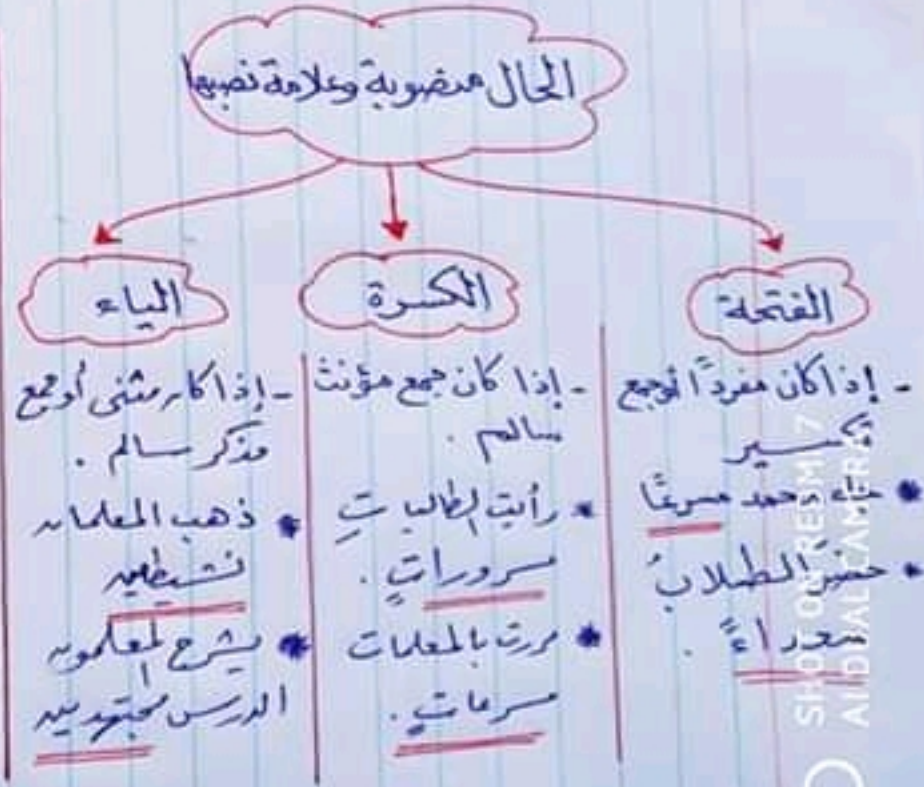 الحال منصوبة وعلامة نصبها
الفتحة
- إذا كان مفردًا أو جمع
تكسير
* جاء محمد مسرعًا
* حضر الطلابُ
سعداءً .
الكسرة
- إذا كان جمع مؤنث
سالم .
* رأيت الطالباتِ
مسروراتٍ .
* مررت بالمعلمات
مسرعاتٍ .
الياء
- إذا كان مثنى أو جمع
مذكر سالم .
* ذهب المعلمان
نشيطين
* يشرح المعلمون
الدرس مجتهدين
SHOT ON REDMI 7
AI DUAL CAMERA